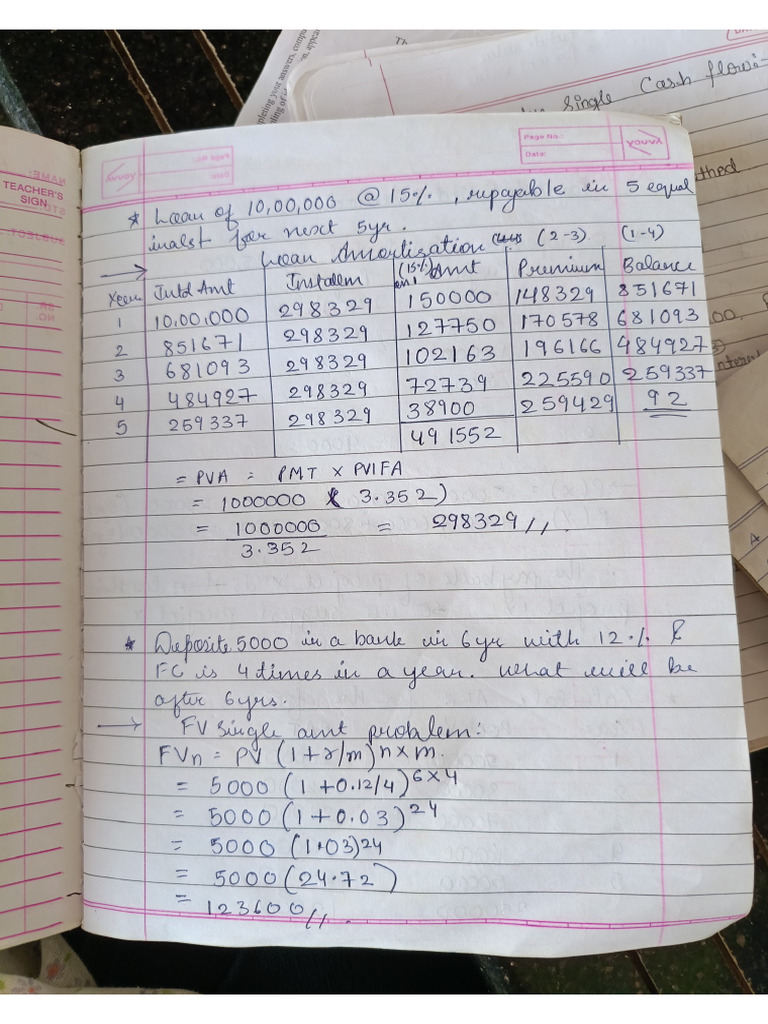 Th
pleting your answers, compu
ting of
on, appea
single Cash flow:-
thed
Page No.:
Date:
YOUVA
TEACHER'S
SIGN
* Loan of 10,00,000 @ 15%, repayable in 5 equal
inalst for next 5yr.
Loan Amortization (2-3) (1-4)
Year Intd Amt Installem (15%) Amt Premium Balance
1 10,00,000 298329 150000 148329 851671
2 851671 298329 127750 170578 681093
3 681093 298329 102163 196166 484927
4 484927 298329 72739 225590 259337
5 259337 298329 38900 259429 92
491552
= PVA = PMT x PVIFA
= 1000000 ( 3.352)
= 1000000 = 298329//.
3.352
* Deposite 5000 in a bank in 6yr with 12% &
FC is 4 times in a year. what will be
after 6yrs.
→ FV single amt problem:
FVn = PV (1+r/m)n×m.
= 5000 (1+0.12/4)6×4
= 5000 (1+0.03)24
= 5000 (1.03)24
= 5000 (24.72)
= 123600//.